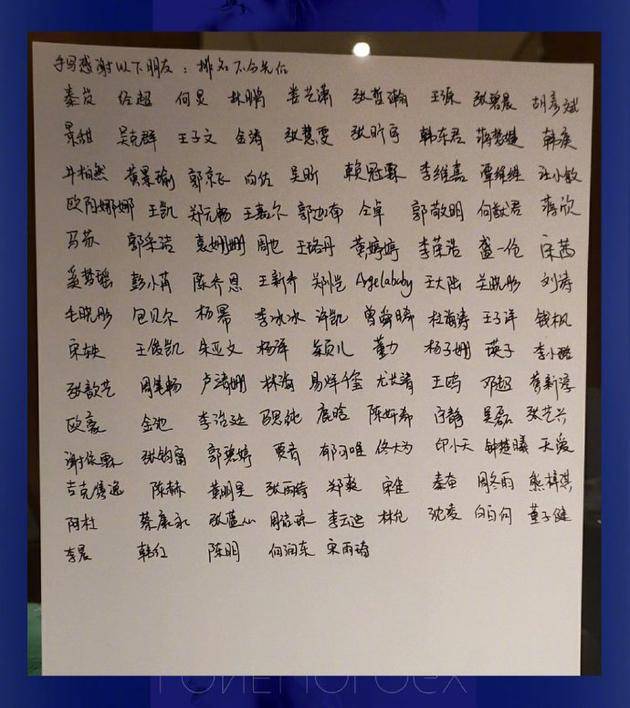 手写感谢以下朋友：排名不分先后
秦岚 经超 何炅 林鹏 娄艺潇 张哲瀚 王源 张碧晨 胡彦斌
景甜 吴克群 王子文 金涛 张慧雯 张昕宇 韩东君 蒋梦婕 韩庚
井柏然 黄景瑜 郭京飞 向佐 吴昕 赖冠霖 李维嘉 谭维维 汪小敏
欧阳娜娜 王凯 郑元畅 王嘉尔 郭迦南 仝卓 郭敬明 何猷君 蒋欣
马苏 郭采洁 袁姗姗 周也 王珞丹 黄婷婷 李荣浩 盛一伦 宋茜
奚梦瑶 彭小苒 陈乔恩 王新乔 郑恺 Angelababy 王大陆 关晓彤 刘涛
毛晓彤 包贝尔 杨幂 李冰冰 许凯 曾舜晞 杜海涛 王子异 钱枫
宋轶 王俊凯 朱亚文 杨洋 颖儿 董力 杨子姗 瑛子 李小璐
张歆艺 周笔畅 卢靖姗 林海 易烊千玺 尤长靖 王鸥 邓超 黄新淳
欧豪 金池 李治廷 阿纯 鹿晗 陈妍希 白静 吴磊 张艺兴
谢依霖 张钧甯 郭碧婷 贾青 郁可唯 佟大为 印小天 钟楚曦 天爱
吉克隽逸 陈赫 黄明昊 张雨绮 郑爽 宋佳 秦奋 周冬雨 熊梓淇
阿杜 蔡康永 张蓝心 周依琼 李云迪 林允 沈凌 白百何 董子健
李晨 韩红 陈明 何润东 宋雨琦